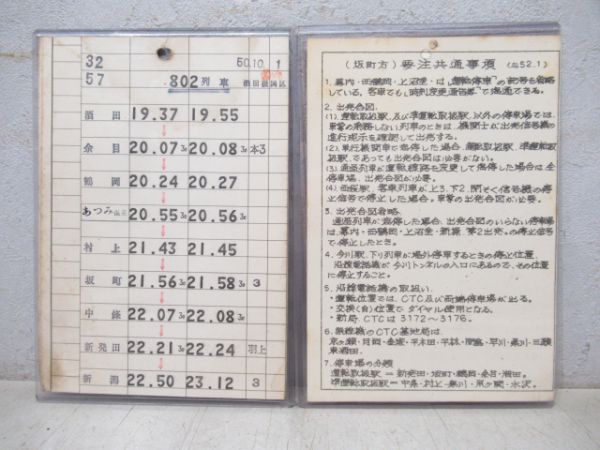 32
57
50.10.1
802列車
酒田 19.37 19.55
余目 20.07 3/4 20.08 3/4 本3
鶴岡 20.24 20.27
あつみ温 20.55 3/4 20.56 3/4
村上 21.43 21.45
坂町 21.56 3/4 21.58 3/4 3
中條 22.07 3/4 22.08 3/4
新発田 22.21 3/4 22.24 羽上
新潟 22.50 23.12 3
(坂町方) 要注共通事項 (S52.1)
1. 幕内・西鶴岡・上沼垂・は「運転停車」の記号を省略
している。客車でも「時刻変更通告券」で通過できる。
2. 出発合図。
(1). 運転取扱駅、及び準運転取扱駅、以外の停車場では、
車掌の乗務しない列車のときは、機関士が出発信号機の
進行現示を確認して出発する。
(2). 単行機関車で停車した場合、運転取扱駅、準運転取
扱駅、であっても出発合図は必要がない。
(3). 通過列車が運転線路を変更して停車した場合は全
停車場、出発合図が必要。
(4). 西坂駅、客車列車が上3、下2、閉そく信号機の停
止信号で停止した場合。車掌の出発合図が必要。
3. 出発合図省略。
通過列車が停車した場合、出発合図のいらない停車場
は、幕内・西鶴岡・上沼垂・新潟「第2出発」の停止信号
で停止したとき。
4. 今川駅、下り列車が場外停車するときの停止位置。
沿線電話機が今川トンネルの入口にあるので、その位置
に停止すること。
5. 沿線電話機の取扱い。
・運転位置では、CTC及び両端停車場が出る。
・交換(自)位置で ダイヤル使用となる。
・新局、CTCは 3172〜3176。
6. 無線機のCTC基地局は、
7. 停車場の分類
運転取扱駅=新発田・坂町・鶴岡・余目・酒田。
準運転取扱駅=中条・村上・桑川・鼠ヶ関・水沢。